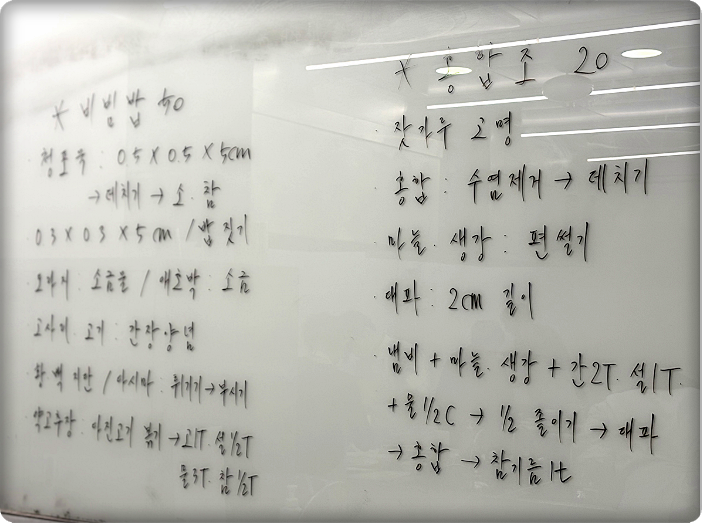 * 비빔밥 50
· 청포묵 : 0.5 X 0.5 X 5cm
→ 데치기 → 소. 참
· 0.3 X 0.3 X 5cm / 밥 짓기
· 도라지 : 소금물 / 애호박 : 소금
· 고사리. 고기 : 간장양념
· 황.백 지단 / 다시마 : 튀기기→부시기
· 약고추장 : 다진고기 볶기 → 고1T. 설1/2T
물3T. 참1/2T
* 홍합초 20
· 잣가루 고명
· 홍합 : 수염제거 → 데치기
· 마늘. 생강 : 편썰기
· 대파 : 2cm 길이
· 냄비 + 마늘. 생강 + 간2T. 설1T.
+ 물1/2C → 1/2 졸이기 → 대파
→ 홍합 → 참기름1t